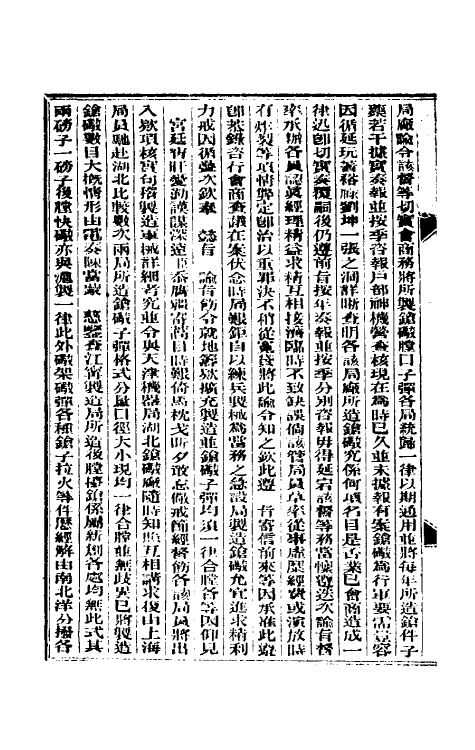 局廠諭令該督等切實會商務將所製鎗膛口子彈各局統歸一律以期通用並將每年所造鎗件子
藥若干據實奏報並按季咨報戶部神機營查核現在為時已久並未據報有案鎗礮為行軍要需豈容
因循延玩著裕祿劉坤一張之洞詳晰查明各該局廠所造鎗礮究係何項名目是否業已會商造成一
律迅即切實奏覆嗣後仍遵前旨按年奏報並按季分別咨報毋得延宕該督等務當懍遵迭次諭旨督
率承辦各員認眞經理精益求精互相接濟臨時不致缺誤倘該管局員草率從事虛糜經費或演放時
有炸裂等項情弊定即治以重罪決不稍從寬貸將此諭令知之欽此遵 旨寄信前來等因承准此遵
即恭錄咨行會商查議在案伏念時局艱鉅自以練兵製械為當務之急設局製造鎗礮允宜進求精利
力戒因循疊次欽奉 懿旨 諭旨飭令就地籌欵擴充製造並鎗礮子彈均須一律合膛各等因仰見
宮廷宵旰憂勤謨謀深遠忝膺疆寄蒿目時艱倚馬枕戈昕夕敢忘儆戒節經督飭各該局員將出
入欵項核實句稽製造軍械詳細考究並令與天津機器局湖北鎗礮廠隨時知照互相講求復由上海
局員馳赴湖北比較數次兩局所造鎗礮子彈格式分量口徑大小現均一律合膛並無歧異已將製造
鎗礮數目大概情形由電奏陳當蒙 慈鑒查江寗製造局所造後膛擡鎗係屬新創各處均無此式其
兩磅子一磅子後膛快礮亦與滬製一律此外礮架礮彈各種鎗子拉火等件歷經解由南北洋分撥各